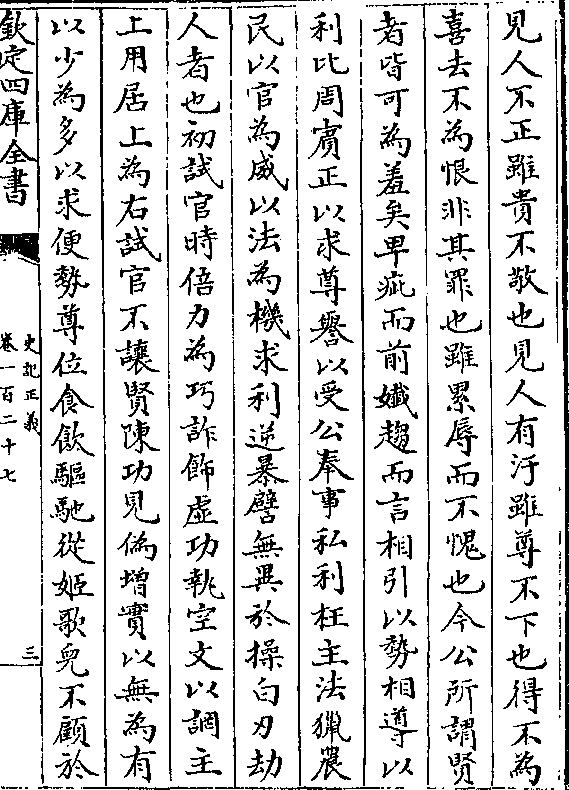 見人不正雖貴不敬也見人有汙雖尊不下也得不為
喜去不為恨非其罪也雖累辱而不愧也今公所謂賢
者皆可為羞矣卑疵而前孅趨而言相引以勢相導以
利比周賓正以求尊譽以受公奉事私利枉主法獵農
民以官為威以法為機求利逆暴譬無異於操白刃劫
人者也初試官時倍力為巧詐飾虛功執空文以誷主
上用居上為右試官不讓賢陳功見偽增實以無為有
以少為多以求便勢尊位食飲驅馳從姬歌兒不顧於
欽定四庫全書
史記正義
卷一百二十七
三